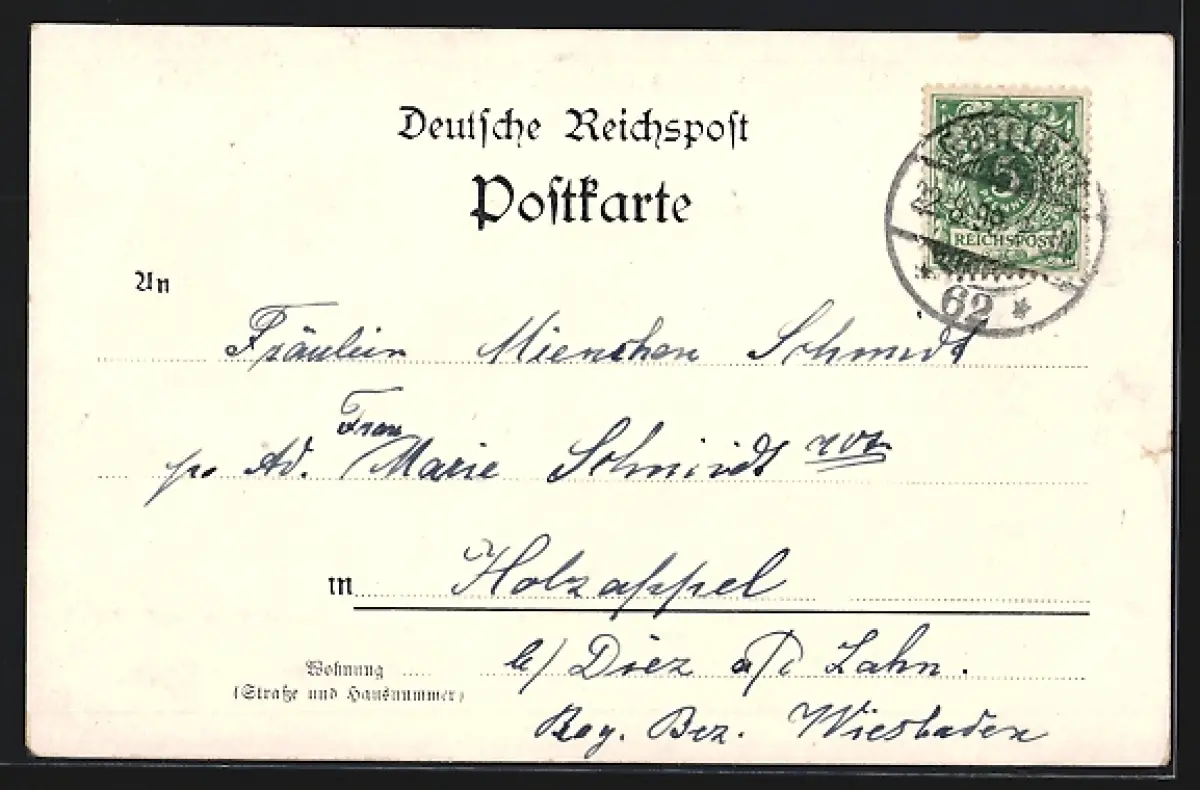 Deutsche Reichspost
Postkarte
5
REICHSPOST
22.8.98
62
An
Fräulein Mienchen Schmidt
pr Ad. Frau Marie Schmidt
in Holzappel
Wohnung b/ Diez a/d Lahn.
(Straße und Hausnummer)
Reg. Bez. Wiesbaden